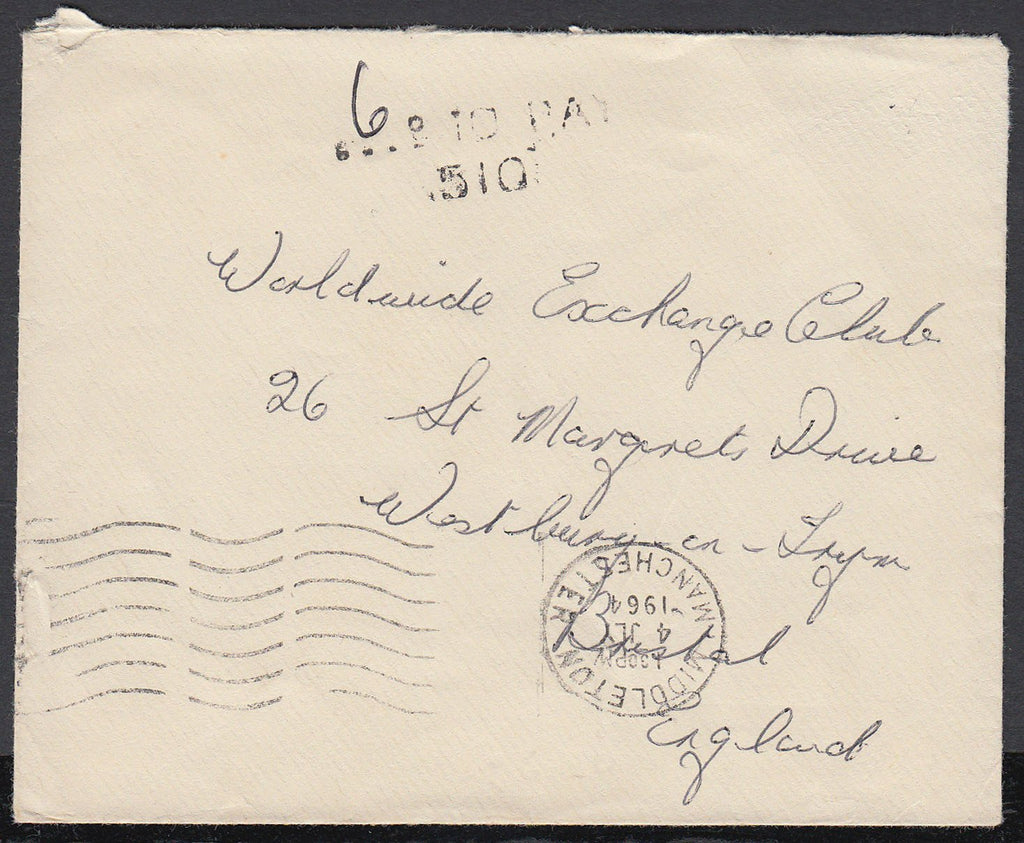 6
D TO PAY
510
Worldwide Exchange Club
26 St Margrets Drive
Westbury-on-Trym
Bristol
England
MIDDLETON
MANCHESTER
1 30PM
4 JLY
1964